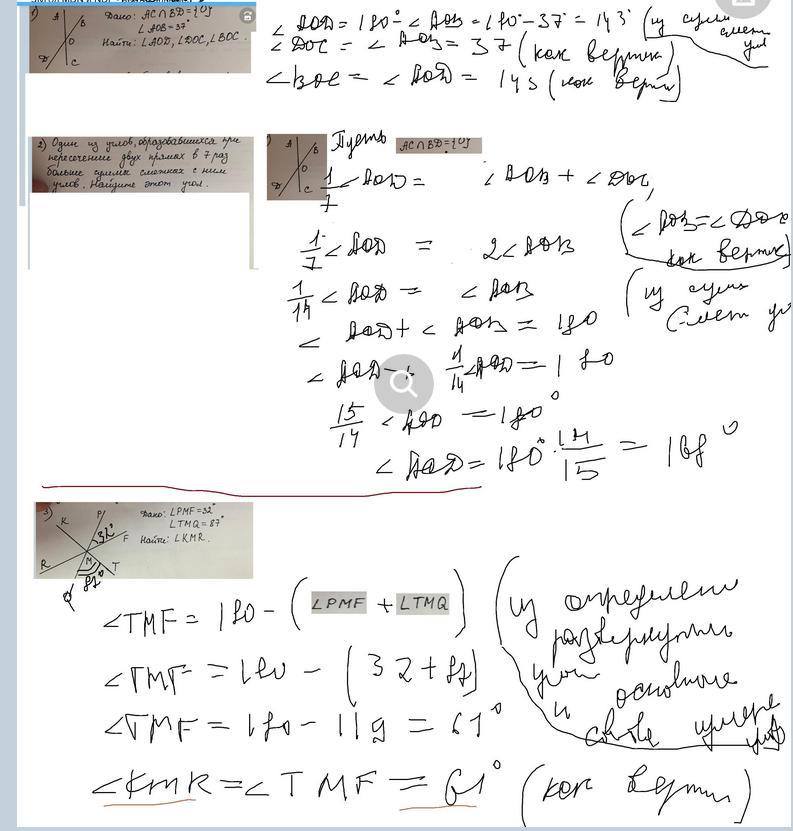 1)
Дано: AC∩BD={O}
∠AOB=37°
Найти: ∠AOD, ∠DOC, ∠BOC.
A B
O
D C
∠AOD=180°-∠AOB=180°-37°=143° (из суммы смежн угл
∠DOC=∠AOB=37 (как вертик)
∠BOC=∠AOD=143 (как верти)
2) Один из углов, образовавшихся при
пересечении двух прямых в 7 раз
больше суммы смежных с ним
углов. Найдите этот угол.
A B
O
D C
Пусть AC∩BD={O}
1/7∠AOD= ∠AOB+∠DOC,
(∠AOB=∠DOC
как вертик)
1/7∠AOD = 2∠AOB
1/14∠AOD = ∠AOB
(из суммы
Смеж уг
∠AOD+∠AOB=180
∠AOD+ 1/14∠AOD=180
15/14∠AOD=180°
∠AOD=180°·14/15=168°
3)
K P F
32°
R M T
Q 87°
Дано: ∠PMF=32°
∠TMQ=87°
Найти: ∠KMR.
∠TMF=180-(∠PMF+∠TMQ)
(из определени
развернутых
угла
и основное
измере
∠TMF=180-(32+87)
∠TMF=180-119=61°
∠KMR=∠TMF=61° (как верти)